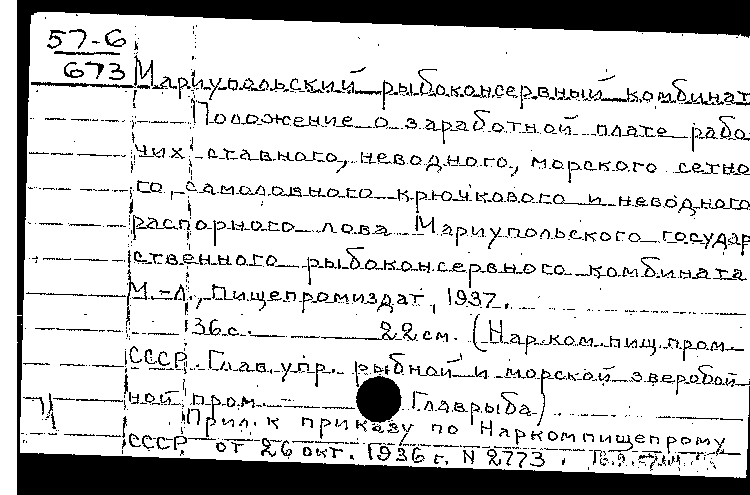 57-6
673
Мариупольский рыбоконсервный комбинат
Положение о заработной плате рабо-
чих ставного, неводного, морского сетно-
го, самоловного крючкового и неводного
распорного лова Мариупольского государ
ственного рыбоконсервного комбината
М.-Л., Пищепромиздат, 1937.
36с. 22см. (Нар.ком.пищ.пром.
СССР. Глав.упр. рыбной и морской зверобой
ной пром. - Главрыба)
Прил. к приказу по Наркомпищепрому
СССР от 26 окт. 1936 г. N 2773.